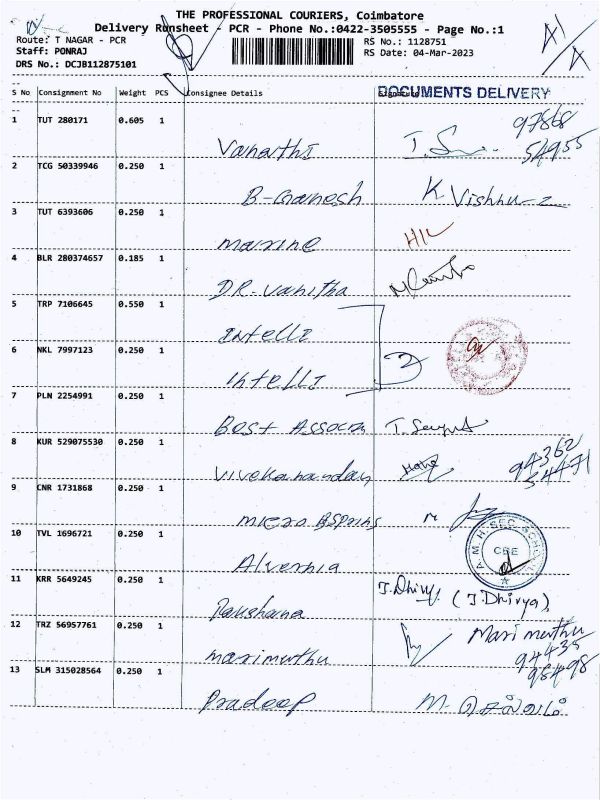 THE PROFESSIONAL COURIERS, Coimbatore
Delivery Runsheet - PCR - Phone No.:0422-3505555 - Page No.:1
Route: T NAGAR - PCR
RS No.: 1128751
Staff: PONRAJ
RS Date: 04-Mar-2023
DRS No.: DCJB112875101
S No Consignment No Weight PCS Consignee Details Signature
DOCUMENTS DELIVERY
1 TUT 280171 0.605 1
97868
54955
Vanathi
2 TCG 50339946 0.250 1
B-Ganesh K Vishnu
3 TUT 6393606 0.250 1
marine
4 BLR 280374657 0.185 1
DR-vanitha
5 TRP 7106645 0.550 1
Intelli
6 NKL 7997123 0.250 1
Intelli 2
7 PLN 2254991 0.250 1
Best Associa
8 KUR 529075530 0.250 1
94362
54471
Vivekanandan
9 CNR 1731868 0.250 1
micro
10 TVL 1696721 0.250 1
A.M.H.SEC.SCHOOL
CBE
Alvernia
11 KRR 5649245 0.250 1
J.Dhivy (J.Dhivya)
12 TRZ 56957761 0.250 1
Marimuthu
94435
98498
marimuthu
13 SLM 315028564 0.250 1
Pradeep M. செல்வம்